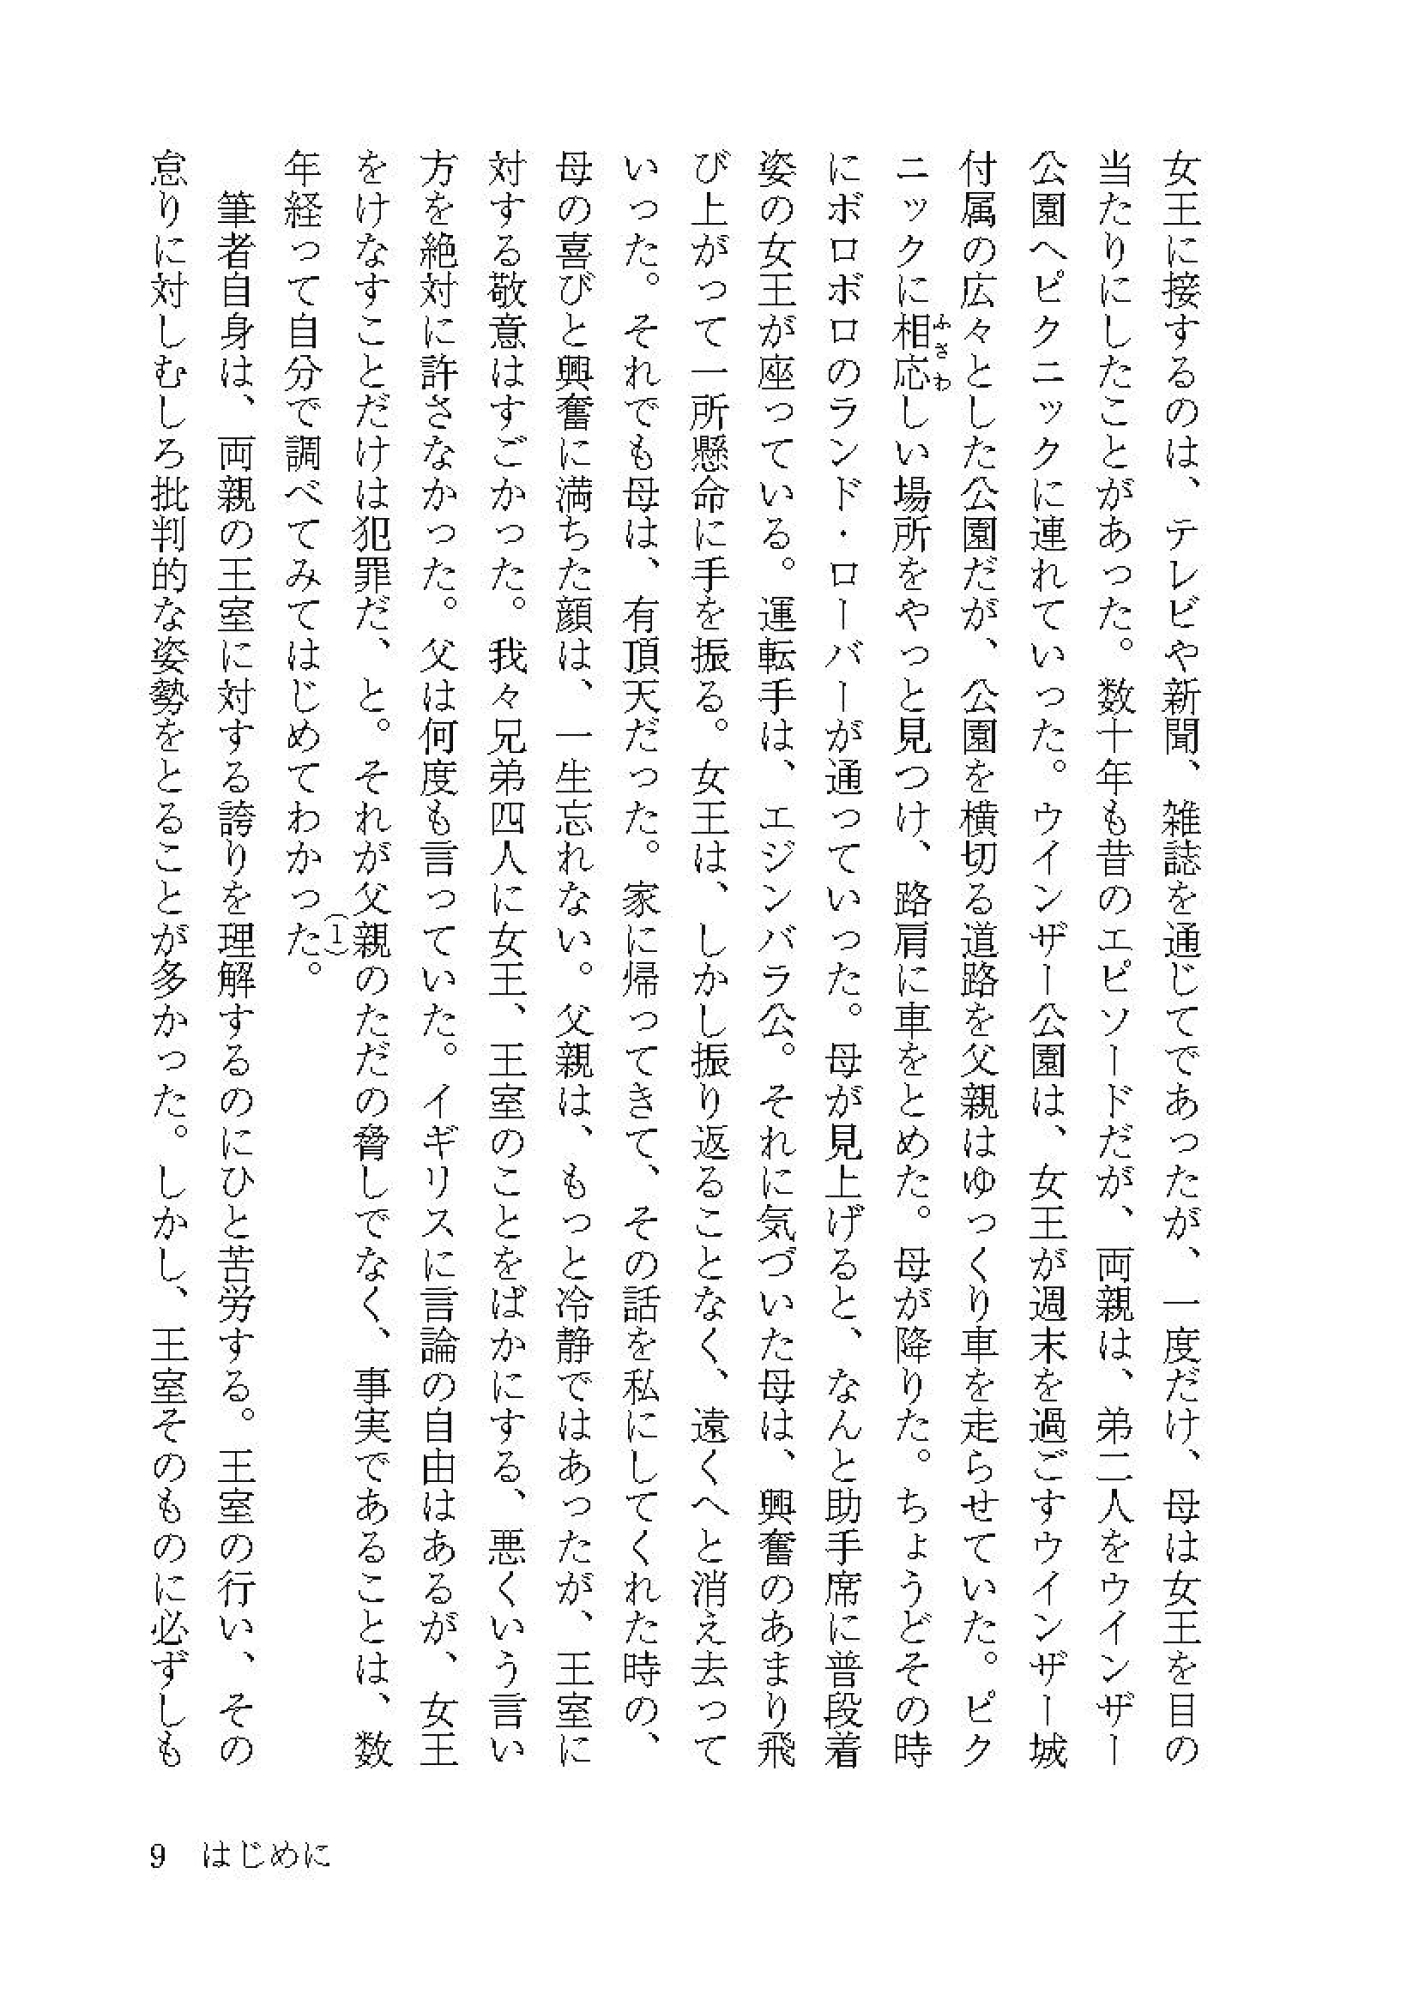 女王に接するのは、テレビや新聞、雑誌を通じてであったが、一度だけ、母は女王を目の
当たりにしたことがあった。数十年も昔のエピソードだが、両親は、弟二人をウインザー
公園へピクニックに連れていった。ウインザー公園は、女王が週末を過ごすウインザー城
付属の広々とした公園だが、公園を横切る道路を父親はゆっくり車を走らせていた。ピク
ニックに相応しい場所をやっと見つけ、路肩に車をとめた。母が降りた。ちょうどその時
ふさわ
にボロボロのランド・ローバーが通っていった。母が見上げると、なんと助手席に普段着
姿の女王が座っている。運転手は、エジンバラ公。それに気づいた母は、興奮のあまり飛
び上がって一所懸命に手を振る。女王は、しかし振り返ることなく、遠くへと消え去って
いった。それでも母は、有頂天だった。家に帰ってきて、その話を私にしてくれた時の、
母の喜びと興奮に満ちた顔は、一生忘れない。父親は、もっと冷静ではあったが、王室に
対する敬意はすごかった。我々兄弟四人に女王、王室のことをばかにする、悪くいう言い
方を絶対に許さなかった。父は何度も言っていた。イギリスに言論の自由はあるが、女王
をけなすことだけは犯罪だ、と。それが父親のただの脅しでなく、事実であることは、数
年経って自分で調べてみてはじめてわかった。(1)
筆者自身は、両親の王室に対する誇りを理解するのにひと苦労する。王室の行い、その
怠りに対しむしろ批判的な姿勢をとることが多かった。しかし、王室そのものに必ずしも
9 はじめに